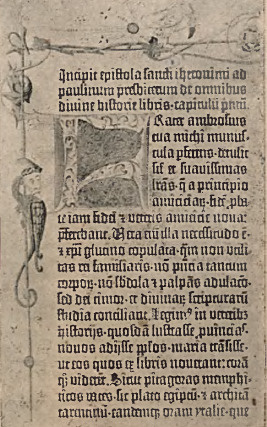 Incipit epistola sancti iheronimi ad
paulinum presbiterum de omnibus
divine historie libris. capitulū pmū.
FRater ambrosius
tua michi munus-
cula pferens. detulit
sil et suavissimas
lras. q̄ a principio
amiciciaꝝ. fidē pba-
te iam fidei ⁊ veteris amicicie noua:
pferebant. Vera eni illa necessitudo ē.
⁊ xpi glutino copulata. qm non vtili-
tas rei familiaris. nō pntia tantum
corpoꝝ. nō sbdola ⁊ palpās adulacō.
sed dei timor. et diuinaꝝ scripturarum
studia conciliant. Legim⁹ in veterib⁹
historijs. quosdā lustrasse puincias.
nouos adijsse pplos. maria transisse.
ut eos quos ex libris nouerant: corā
qꝫ viderēt. Sicut pitagoras memphi-
ticos vates. sic plato egiptū. ⁊ architā
tarentinū. eandemqꝫ oram ytalie. que